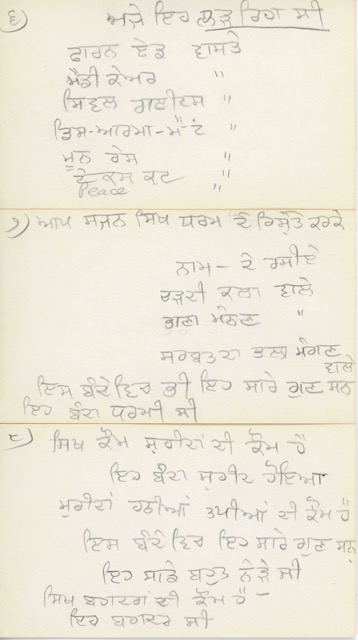 ੬) ਅਜੇ ਇਹ ਲੜ ਰਿਹਾ ਸੀ
ਫਾਰਨ ਏਡ ਵਾਸਤੇ
ਮੈਡੀ ਕੇਅਰ "
ਸਿਵਲ ਰਾਈਟਸ "
ਡਿਸ-ਆਰਮਾ-ਮੈਂਟ "
ਮੂਨ ਰੇਸ "
ਟੈਕਸ ਕਟ "
Peace
੭) ਆਪ ਸਜਨ ਸਿਖ ਧਰਮ ਦੇ ਰਿਸ਼ਤੇ ਕਰਕੇ
ਨਾਮ - ਦੇ ਰਸੀਏ
ਚੜਦੀ ਕਲਾ ਵਾਲੇ
ਭਾਣਾ ਮੰਨਣ "
ਸਰਬਤ ਦਾ ਭਲਾ ਮੰਗਣ
ਵਾਲੇ
ਇਸ ਬੰਦੇ ਵਿਚ ਭੀ ਇਹ ਸਾਰੇ ਗੁਣ ਸਨ
ਇਹ ਬੰਦਾ ਧਰਮੀ ਸੀ
੮) ਸਿਖ ਕੌਮ ਸ਼ਹੀਦਾਂ ਦੀ ਕੌਮ ਹੈ
ਇਹ ਬੰਦਾ ਸ਼ਹੀਦ ਹੋਇਆ
ਮੁਰੀਦਾਂ ਹਠੀਆਂ ਤਪੀਆਂ ਦੀ ਕੌਮ ਹੈ
ਇਸ ਬੰਦੇ ਵਿਚ ਇਹ ਸਾਰੇ ਗੁਣ ਸਨ
ਇਹ ਸਾਡੇ ਬਹੁਤ ਨੇੜੇ ਸੀ
ਸਿਖ ਬਹਾਦਰਾਂ ਦੀ ਕੌਮ ਹੈ -
ਇਹ ਬਹਾਦਰ ਸੀ